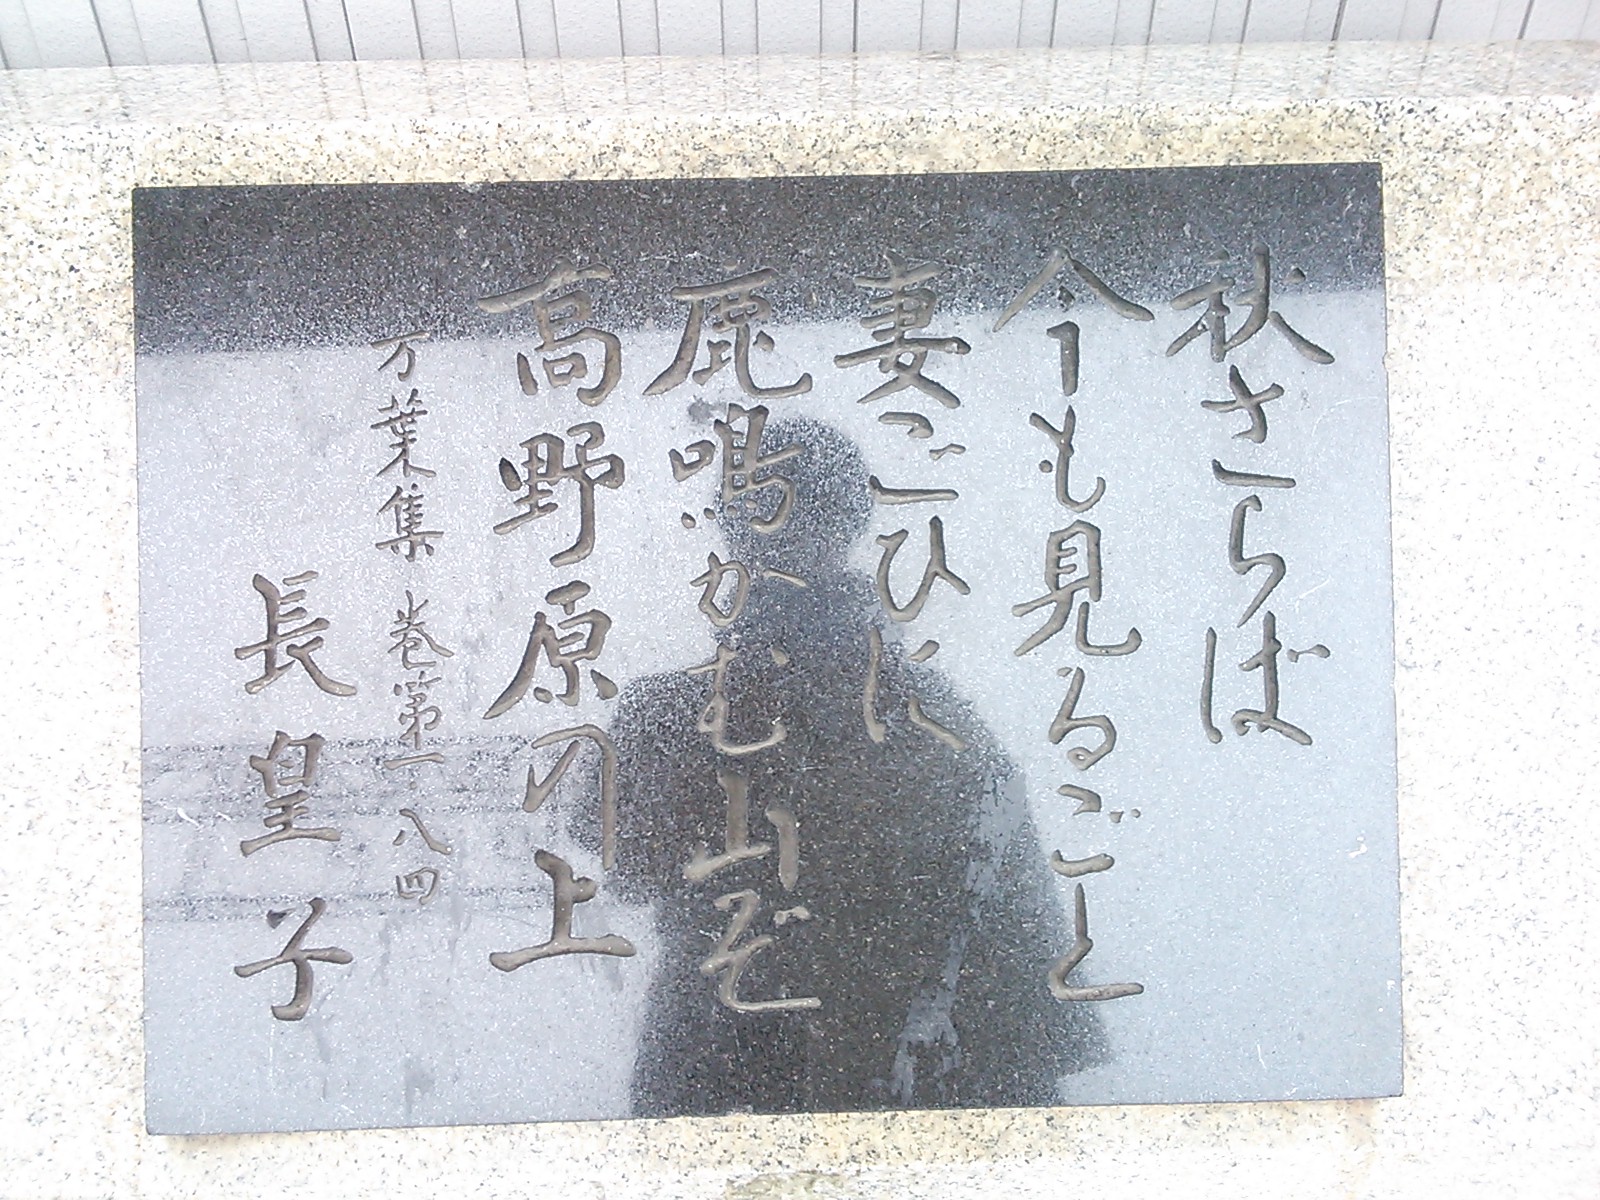 秋さらば
今も見るごと
妻ごひに
鹿鳴かむ山ぞ
高野原の上
万葉集 巻第一・八四
長皇子